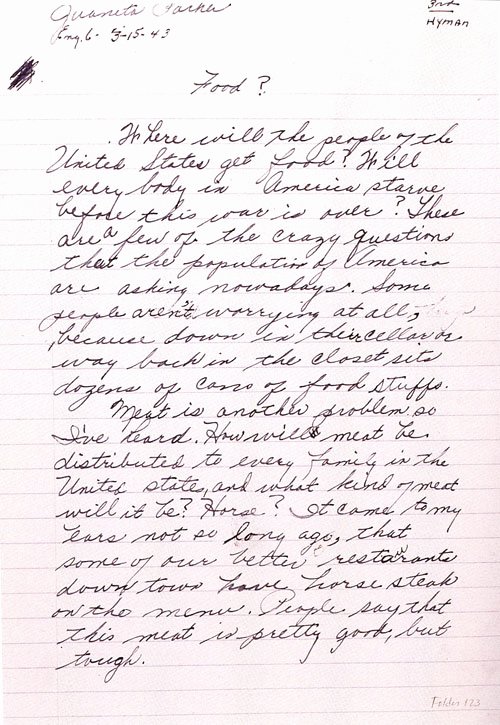 Juaneta Parker
3rd
Eng. 6- 3-15-43
HYMAN
Food?
Where will the people of the
United States get food? Will
every body in America starve
before this war is over? These
are a few of the crazy questions
that the population of America
are asking nowadays. Some
people aren't worrying at all,
because down in their cellar or
way back in the closet sits
dozens of cans of food stuffs.
Meat is another problem so
I've heard. How will meat be
distributed to every family in the
United States, and what kind of meat
will it be? Horse? It came to my
ears not so long ago, that
some of our better restaurants
down town have horse steak
on the menu. People say that
this meat is pretty good, but
tough.
Folder 123